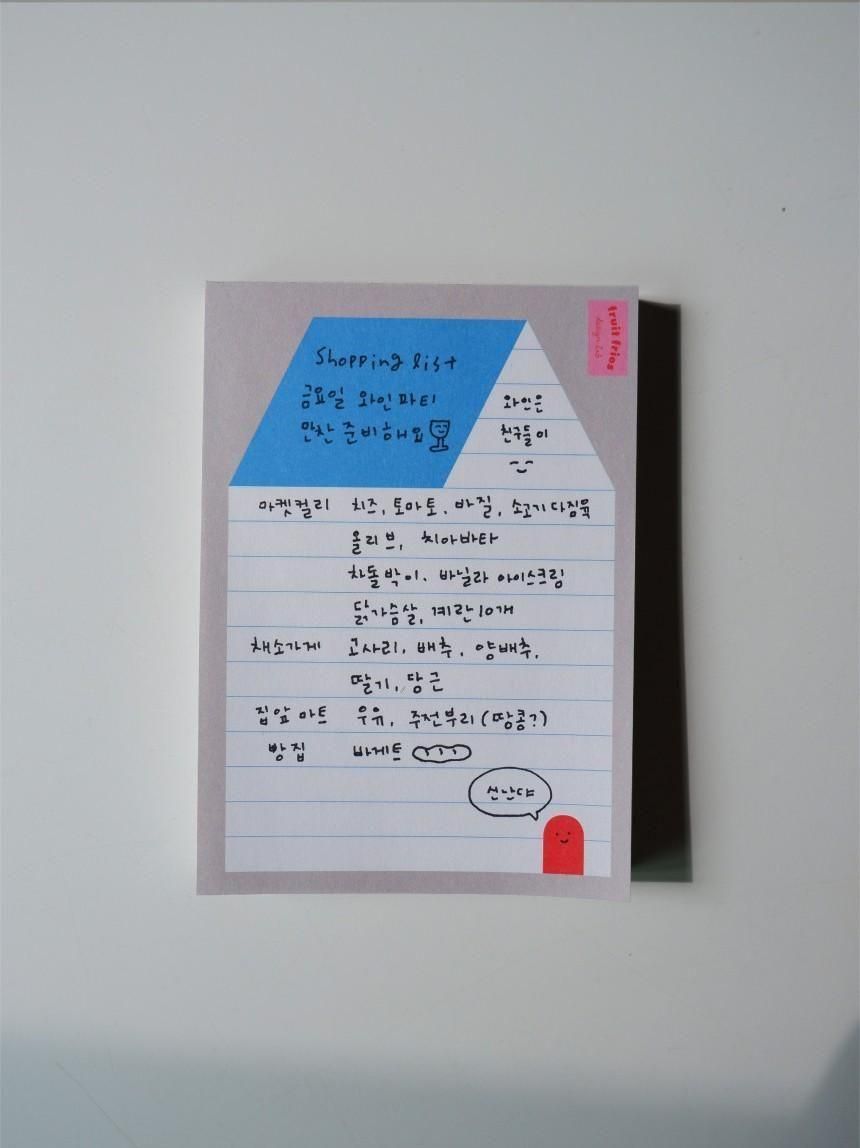 fruit fries
design lab
Shopping list
금요일 와인파티
만찬 준비해요
와인은
친구들이
마켓컬리 치즈, 토마토, 바질, 소고기다짐육
올리브, 치아바타
차돌박이, 바닐라 아이스크림
닭가슴살, 계란10개
채소가게 고사리, 배추, 양배추,
딸기, 당근
집앞 마트 우유, 주전부리(땅콩?)
빵집 바게트
신난다